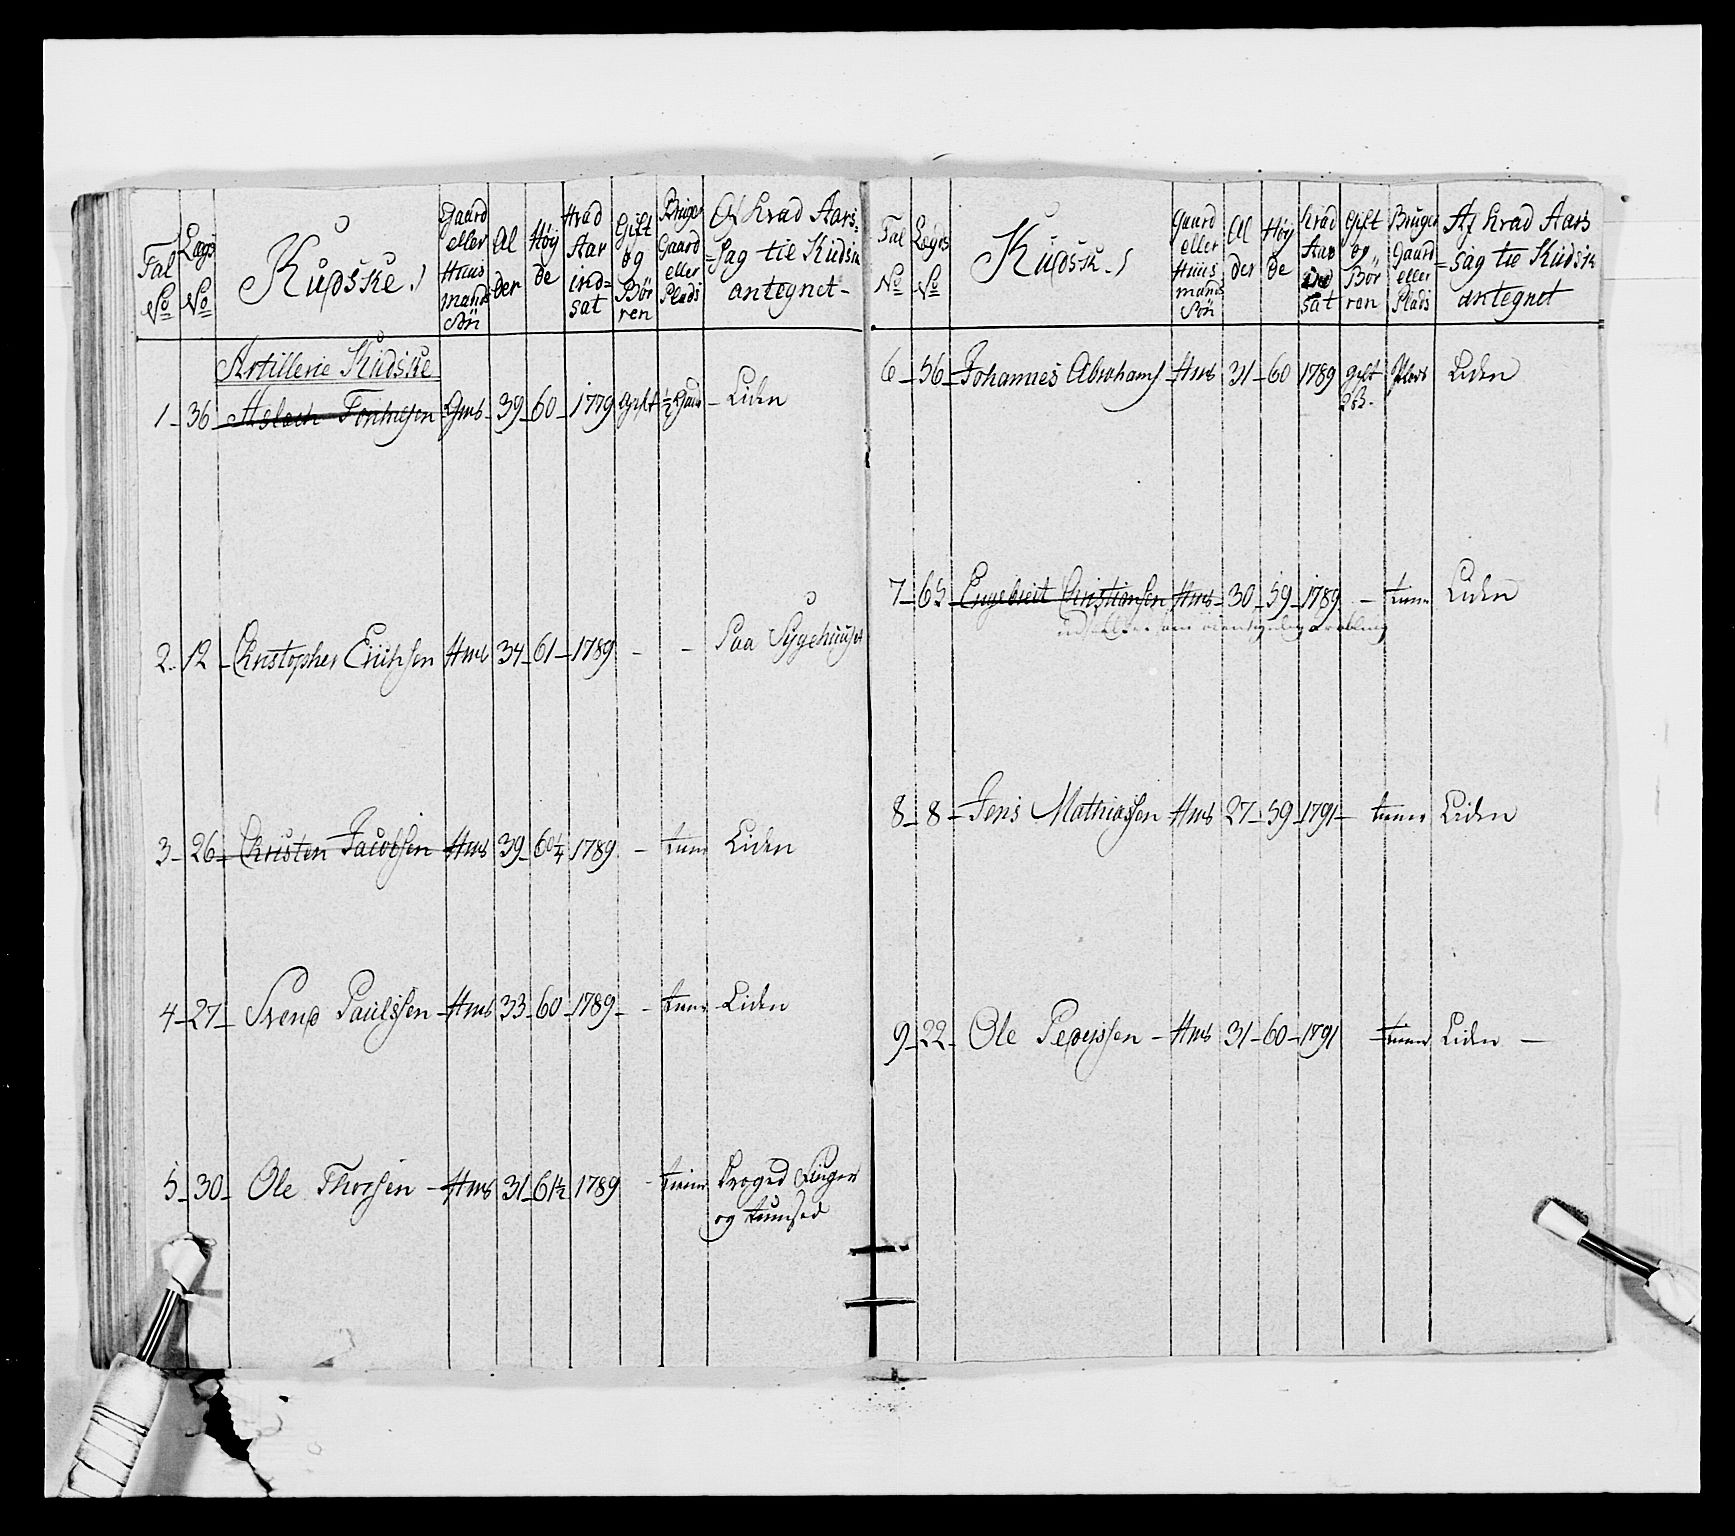 Fal No
Lægs No
Kudske
Gaard eller Huus mands Sön
Al der
Höy de
Hvad Aar ind= sat
Gift og Bör ren
Bruger Gaard eller Plads
Af hvad Aars= =sag til Kudsk antegnet
Artillerie Kudske
1 36 Aslach Gms 39 60 1779 gift ½ Gaard Liden
2 12 Christopher Erichsen Hms 34 61 1789 - - Paa Sygehuuset
3 26 Christen Jacobsen Hms 39 60¼ 1789 - tiener Liden
4 27 Svend Paulssen Hms 33 60 1789 - tiener Liden
5 30 Ole Thorsen Hms 31 61½ 1789 - tiener Kroged Finger
og
Fal No
Lægs No
Kudsk
Gaard eller Huus mands Sön
Al der
Höy de
hvad Aar ind sat
Gift og Bör ren
Bruger Gaard eller Plads
Af hvad Aars =sag til Kudsk antegnet
6 56 Johannes Abrahams Hms 31 60 1789 gift Plads Liden
2 B.
7 65 Engebret Christiansen Hms 30 59 1789 - tiener Liden
8 8 Jens Mathiassen Hms 27 59 1791 - tiener Liden
9 22 Ole Pedersen Hms 31 60 1791 tiener Liden